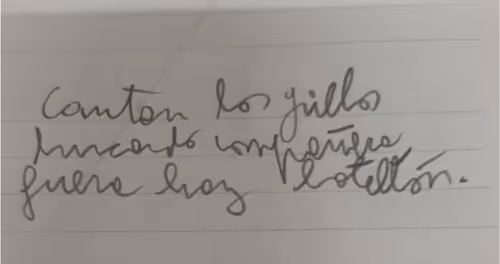 Cantan los grillos
buscando compañera
fuera hay botellón.